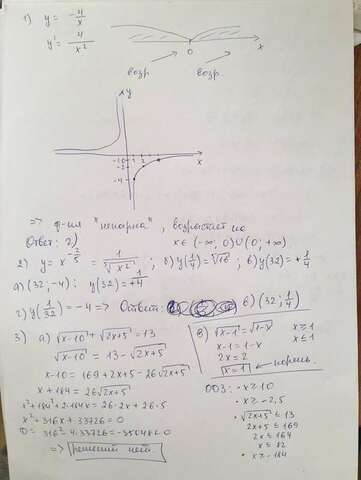 1) y = -4/x
y' = 4/x²
0 x
возр. возр.
y
1 2 x
-2
-4
=> ф-ия "непарна", возрастает на
Ответ: 2) x ∈ (-∞; 0) ∪ (0; +∞)
2) y = x^(-2/5) = 1/⁵√x² ; б) y(1/4) = ⁵√16 ; в) y(32) = +1/4
а) (32; -4): y(32) = +1/4
г) y(1/32) = -4 => Ответ: в) (32; 1/4)
3) а) √(x-10) + √(2x+5) = 13
√(x-10) = 13 - √(2x+5)
x-10 = 169 + 2x+5 - 26√(2x+5)
x + 184 = 26√(2x+5)
x² + 184² + 2·184x = 26·2x + 26·5
x² + 316x + 33726 = 0
D = 316² - 4·33726 = -35048 < 0
=> решений нет.
в) √(x-1) = √(1-x) x ≥ 1
x-1 = 1-x x ≤ 1
2x = 2
x = 1 ← корень.
ООЗ: • x ≥ 10
• x ≥ -2,5
• √(2x+5) ≤ 13
2x+5 ≤ 169
2x ≤ 164
x ≤ 82
• x ≥ -184